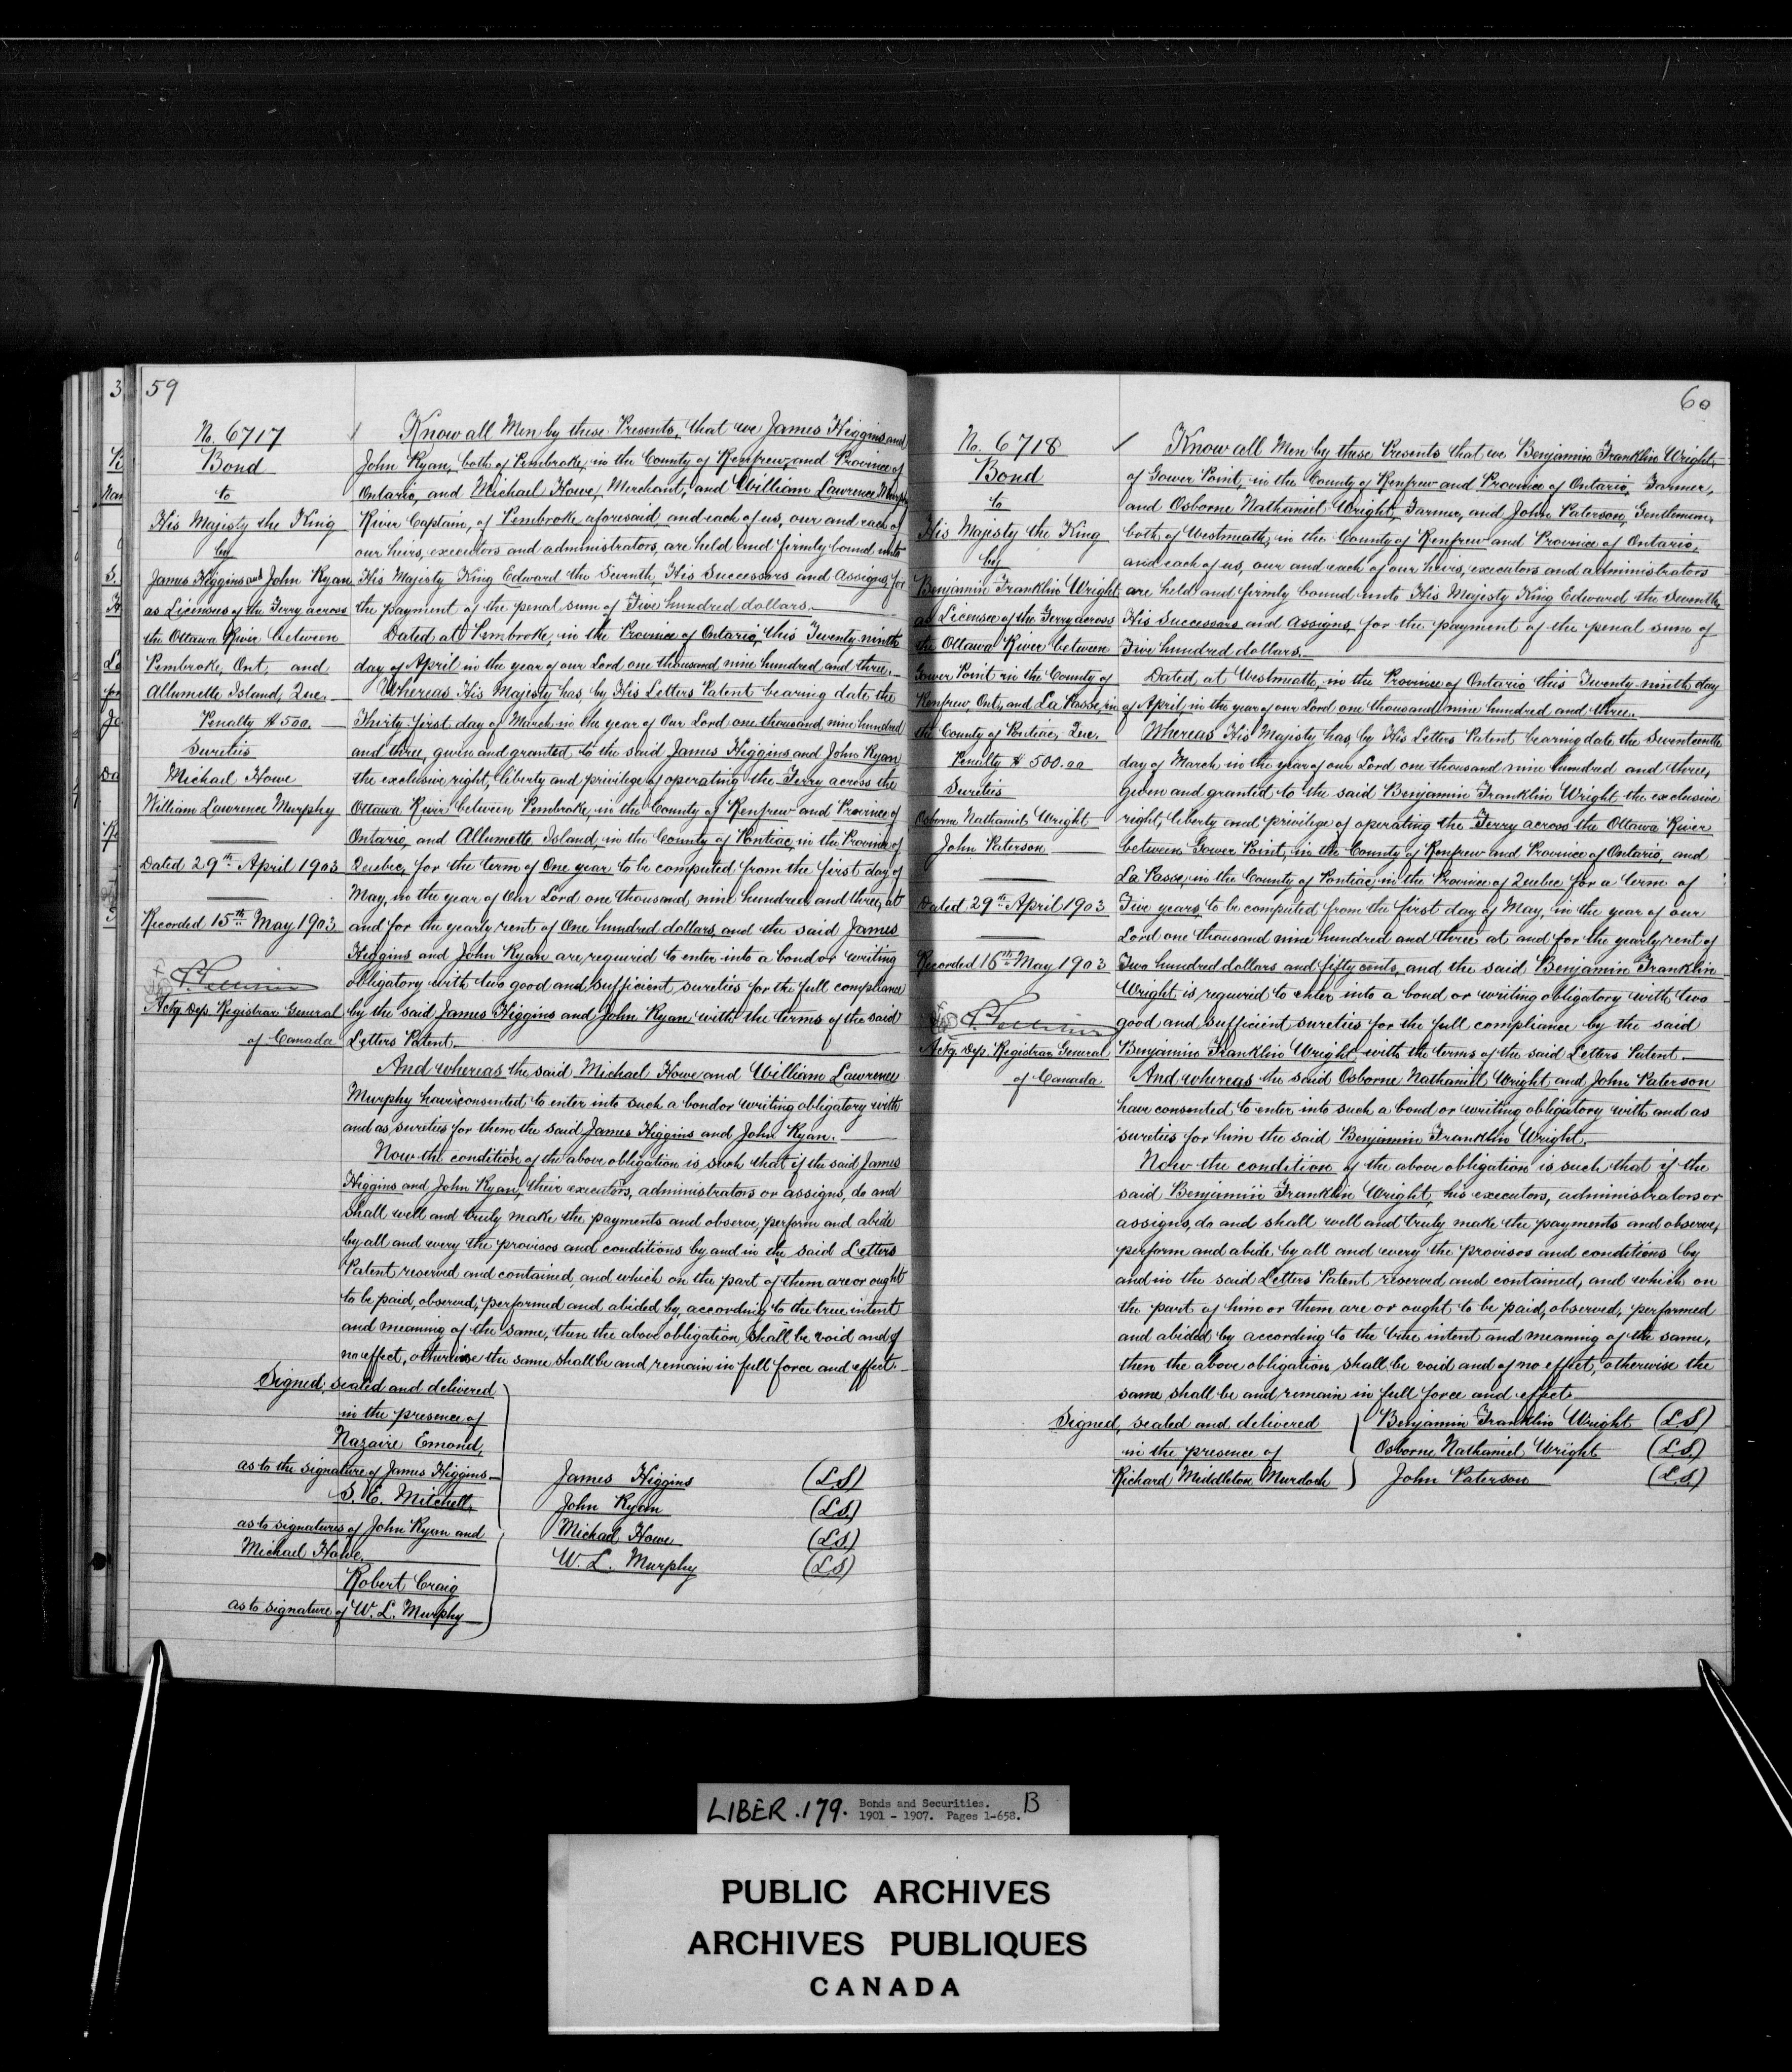 59
No. 6717
Bond
to
His Majesty the King
by
James Higgins and John Ryan
as Licensees of the Ferry across
the Ottawa River between
Pembroke, Ont, and
Allumette Island, Que.
Penalty $500.
Sureties
Michael Howe
William Lawrence Murphy
Dated 29th April 1903
Recorded 15th May 1903
Actg. Dep. Registrar General
of Canada
Know all Men by these Presents, that we James Higgins and
John Ryan, both of Pembroke, in the County of Renfrew, and Province of
Ontario, and Michael Howe, Merchant, and William Lawrence Murphy
River Captain, of Pembroke aforesaid and each of us, our and each of
our heirs, executors and administrators, are held and firmly bound unto
His Majesty King Edward the Seventh, His Successors and Assigns, for
the payment of the penal sum of Five hundred dollars.
Dated at Pembroke, in the Province of Ontario, this Twenty-ninth
day of April in the year of our Lord one thousand nine hundred and three.
Whereas His Majesty has, by His Letters Patent bearing date the
Thirty-first day of March in the year of Our Lord one thousand nine hundred
and three, given and granted to the said James Higgins and John Ryan
the exclusive right, liberty and privilege of operating the Ferry across the
Ottawa River between Pembroke, in the County of Renfrew and Province of
Ontario, and Allumette Island, in the County of Pontiac, in the Province of
Quebec, for the term of One year to be computed from the first day of
May, in the year of Our Lord one thousand, nine hundred and three, at
and for the yearly rent of One hundred dollars, and the said James
Higgins and John Ryan are required to enter into a bond or writing
obligatory with two good and sufficient sureties for the full compliance
by the said James Higgins and John Ryan with the terms of the said
Letters Patent.
And whereas the said Michael Howe and William Lawrence
Murphy have consented to enter into such a bond or writing obligatory with
and as sureties for them the said James Higgins and John Ryan.
Now the condition of the above obligation is such that if the said James
Higgins and John Ryan, their executors, administrators or assigns, do and
shall well and truly make the payments and observe, perform and abide
by all and every the provisos and conditions by and in the said Letters
Patent reserved and contained, and which on the part of them are or ought
to be paid, observed, performed and abided by, according to the true intent
and meaning of the same, then the above obligation shall be void and of
no effect, otherwise the same shall be and remain in full force and effect.
Signed, sealed and delivered
in the presence of
Nazaire Emond,
as to the signature of James Higgins
S. E. Mitchell
as to signatures of John Ryan and
Michael Howe.
Robert Craig
as to signature of W. L. Murphy
James Higgins (L.S)
John Ryan (L.S.)
Michael Howe (L.S)
W. L. Murphy (L.S)
60
No. 6718
Bond
to
His Majesty the King
by
Benjamin Franklin Wright
as Licensee of the Ferry across
the Ottawa River between
Gower Point in the County of
Renfrew, Ont., and La Passe, in
the County of Pontiac, Que.
Penalty $500.00
Sureties
Osborne Nathaniel Wright
John Paterson
Dated 29th April 1903
Recorded 15th May 1903
Actg. Dep. Registrar General
of Canada
Know all Men by these Presents that we Benjamin Franklin Wright,
of Gower Point, in the County of Renfrew and Province of Ontario, Farmer,
and Osborne Nathaniel Wright, Farmer, and John Paterson, Gentleman,
both of Westmeath, in the County of Renfrew and Province of Ontario,
and each of us, our and each of our heirs, executors and administrators
are held and firmly bound unto His Majesty King Edward the Seventh,
His Successors and Assigns, for the payment of the penal sum of
Five hundred dollars.
Dated, at Westmeath, in the Province of Ontario this Twenty-ninth day
of April, in the year of our Lord one thousand nine hundred and three.
Whereas His Majesty has, by His Letters Patent bearing date the Seventeenth
day of March, in the year of our Lord one thousand nine hundred and three,
given and granted to the said Benjamin Franklin Wright the exclusive
right, liberty and privilege of operating the Ferry across the Ottawa River
between Gower Point, in the County of Renfrew and Province of Ontario, and
La Passe, in the County of Pontiac, in the Province of Quebec for a term of
Five years, to be computed from the first day of May, in the year of our
Lord one thousand nine hundred and three at and for the yearly rent of
Two hundred dollars and fifty cents, and the said Benjamin Franklin
Wright is required to enter into a bond or writing obligatory with two
good and sufficient sureties for the full compliance by the said
Benjamin Franklin Wright, with the terms of the said Letters Patent.
And whereas the said Osborne Nathaniel Wright and John Paterson
have consented to enter into such a bond or writing obligatory with and as
sureties for him the said Benjamin Franklin Wright.
Now the condition of the above obligation is such that if the
said Benjamin Franklin Wright, his executors, administrators or
assigns, do and shall well and truly make the payments and observe,
perform and abide by all and every the provisos and conditions by
and in the said Letters Patent reserved and contained, and which on
the part of him or them are or ought to be paid, observed, performed
and abided by according to the true intent and meaning of the same,
then the above obligation shall be void and of no effect, otherwise the
same shall be and remain in full force and effect.
Signed, sealed and delivered
in the presence of
Richard Middleton Murdoch
Benjamin Franklin Wright (L.S)
Osborne Nathaniel Wright (L.S.)
John Paterson (L.S)
LIBER .179. Bonds and Securities. B
1901 - 1907. Pages 1-658.
PUBLIC ARCHIVES
ARCHIVES PUBLIQUES
CANADA